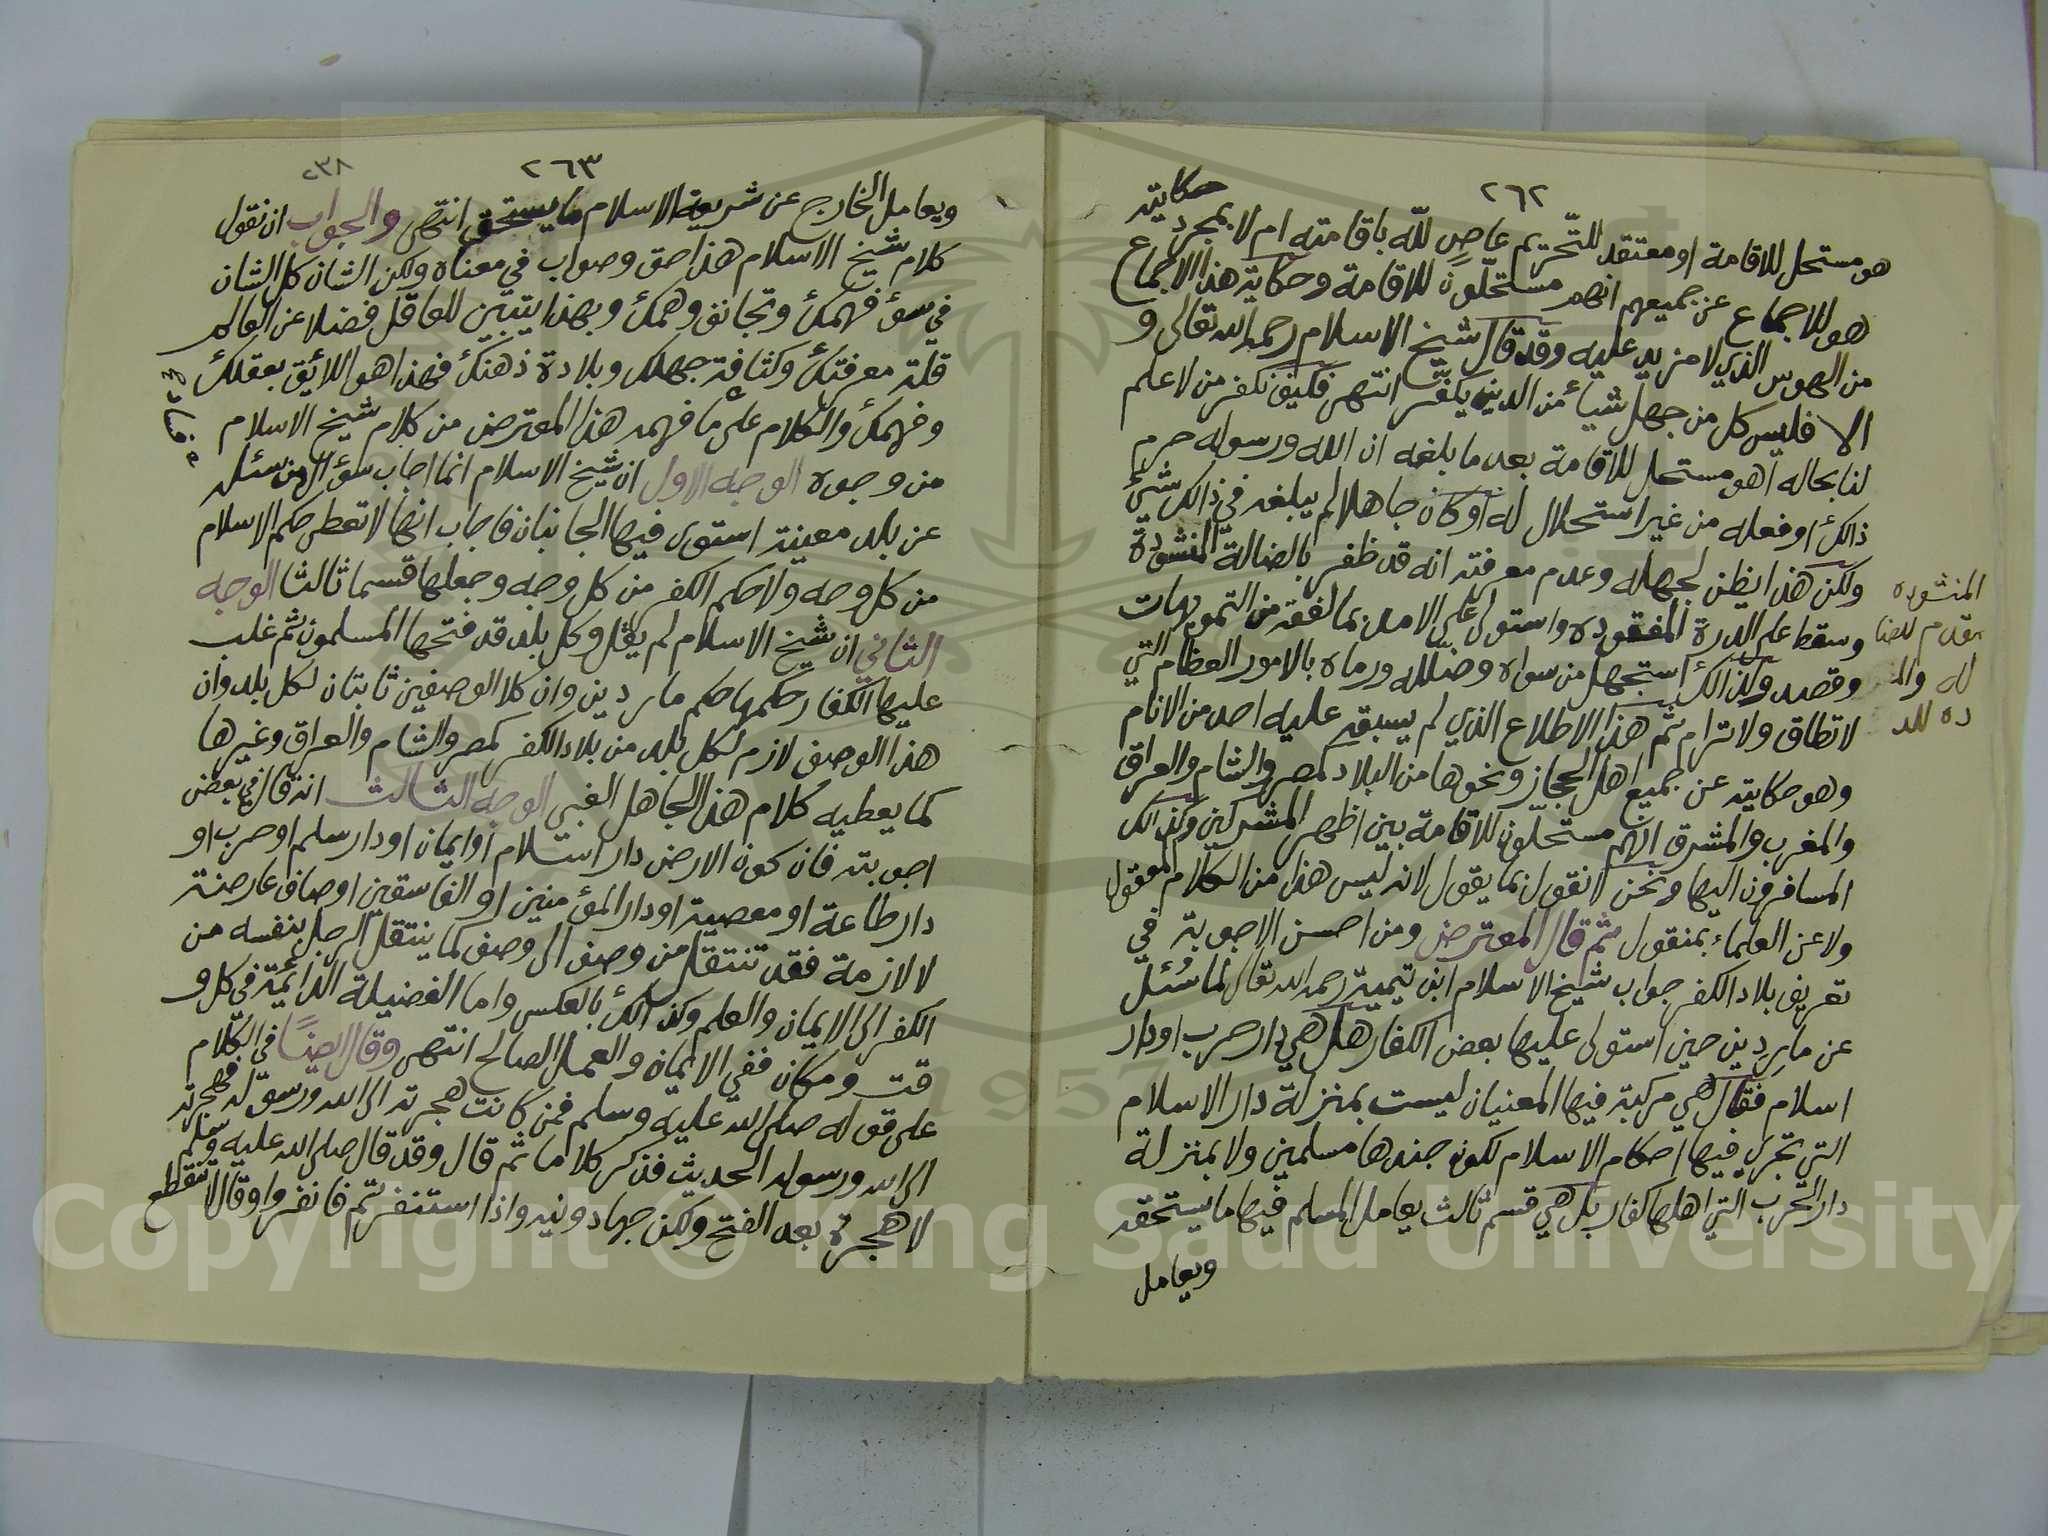 ٢٦٢
هو مستحل للاقامة او معتقد للتحريم عاصٍ للّه باقامته ام لا بمجرد حكايته
هو للاجماع عن جميعهم انهم مستحلّون للاقامة وحكاية هذا الاجماع
من الهوس الذي لا مزيد عليه وقد قال شيخ الاسلام رحمه الله تعالى و
الا فليس كل من جهل شيأ من الدين يكفر انتهى فكيف نكفر من لا علم
لنا بحاله اهو مستحل للاقامة بعد ما بلغه ان الله ورسوله حرم
ذالك او فعله من غير استحلال له او كان جاهلا لم يبلغه في ذالك شيئ
ولكن هذا يظن لجهله وعدم معرفته انه قد ظفر بالضالة المنشودة
وسقط على الدرة المفقوده واستولى على الامد بما لفقه من التمويهات
وقصد ولذالك استجهل من سواه وضلله ورماه بالامور العظام التي
لا تطاق ولا ترام ثم هذا الاطلاع الذي لم يسبقه عليه احد من الانام
وهو حكايته عن جميع اهل الحجاز ونحوها من البلاد كمصر والشام والعراق
والمغرب والمشرق انهم مستحلّون للاقامة بين اظهر المشركين وكذالك
المسافرون اليها ونحن لا نقول بما يقول لانه ليس هذا من الكلام المعقول
ولا عن العلماء بمنقول ثم قال المعترض ومن احسن الاجوبة في
تعريف بلاد الكفر جواب شيخ الاسلام ابن تيمية رحمه الله تعالى لما سُئل
عن ماردين حين استولى عليها بعض الكفار هل هي دار حرب او دار
اسلام فقال هي مركبة فيها المعنيان ليست بمنزلة دار الاسلام
التي تجري فيها احكام الاسلام لكون جندها مسلمين ولا بمنزلة
دار الحرب التي اهلها كفار بل هي قسم ثالث يعامل المسلم فيها ما يستحقه
ويعامل
المنشوده
٢٦٣
٢٣٨
ويعامل الخارج عن شريعة الاسلام ما يستحق انتهى والجواب ان نقول
كلام شيخ الاسلام هذا حق وصواب في معناه ولكن الشان كل الشان
في سوء فهمك وتجانف وهمك وبهذا يتبين للعاقل فضلا عن العالم
قلة معرفتك وكثافة جهلك وبلادة ذهنك فهذا هو اللائق بعقلك
وفهمك والكلام على ما فهمه هذا المعترض من كلام شيخ الاسلام
من وجوه الوجه الاول ان شيخ الاسلام انما اجاب سؤال من سئله
عن بلد معينة استوى فيها الجانبان فاجاب انها لا تعطى حكم الاسلام
من كل وجه ولا حكم الكفر من كل وجه وجعلها قسما ثالثا الوجه
الثاني ان شيخ الاسلام لم يقل وكل بلد قد فتحها المسلمون ثم غلب
عليها الكفار حكمها حكم ماردين وان كلا الوصفين ثابتان لكل بلد وان
هذا الوصف لازم لكل بلد من بلاد الكفر كمصر والشام والعراق وغيرها
كما يعطيه كلام هذا الجاهل الغبي الوجه الثالث انه قال في بعض
اجوبته فان كون الارض دار اسلام او ايمان او دار سلم او حرب او
دار طاعة او معصية او دار المؤمنين او الفاسقين اوصاف عارضة
لا لازمة فقد تنتقل من وصف الى وصف كما ينتقل الرجل بنفسه من
الكفر الى الايمان والعلم وكذالك بالعكس واما الفضيلة الدائمة في كل و
قت ومكان ففي الايمان والعمل الصالح انتهى وقال ايضًا في الكلام
على قوله صلى الله عليه وسلم فمن كانت هجرته الى الله ورسوله فهجرته
الى الله ورسوله الحديث فذكر كلاما ثم قال وقد قال صلى الله عليه وسلم
لا هجرة بعد الفتح ولكن جهاد ونية واذا استنفرتم فانفروا وقال لا تنقطع
Copyright © King Saud University
1957